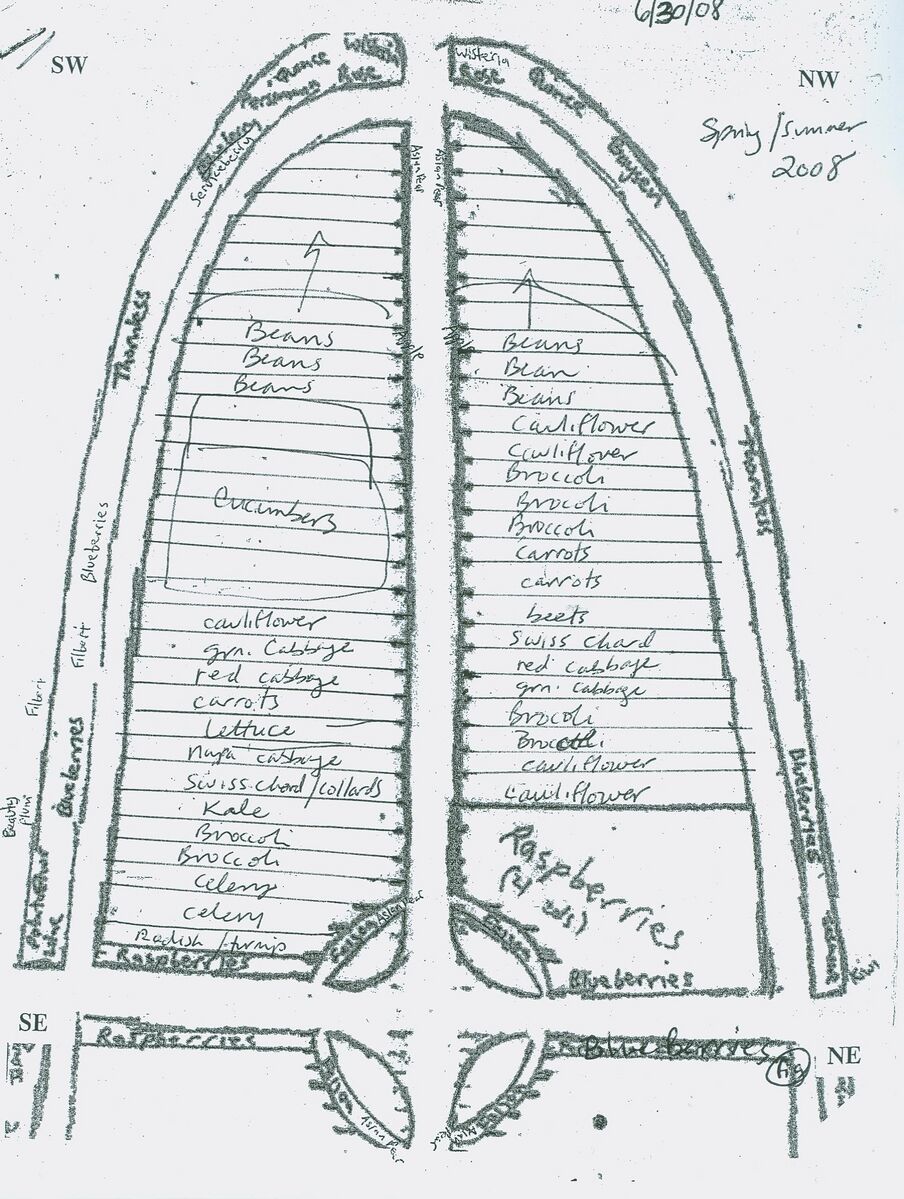 6/30/08
SW
NW
Spring/Summer
2008
Wisteria
Quince
Rose
Persimmon
Blueberry
Serviceberry
Thornless
Blueberries
Filbert
Filbert
Blueberries
Beauty
Plum
Wisteria
Rose
Quince
Thornless
Blueberries
Kiwi
Asian Pear
Asian Pear
Beans
Beans
Beans
Cucumbers
cauliflower
grn. Cabbage
red cabbage
carrots
Lettuce
Napa cabbage
Swiss chard/collards
Kale
Broccoli
Broccoli
celery
celery
Radish/turnip
Raspberries
Asian Pear
Beans
Bean
Beans
Cauliflower
Cauliflower
Broccoli
Broccoli
Broccoli
carrots
carrots
beets
Swiss chard
red cabbage
grn. cabbage
Brocoli
Broccoli
cauliflower
cauliflower
Raspberries
Blueberries
SE
NE
Raspberries
Blueberries
Asian Pear